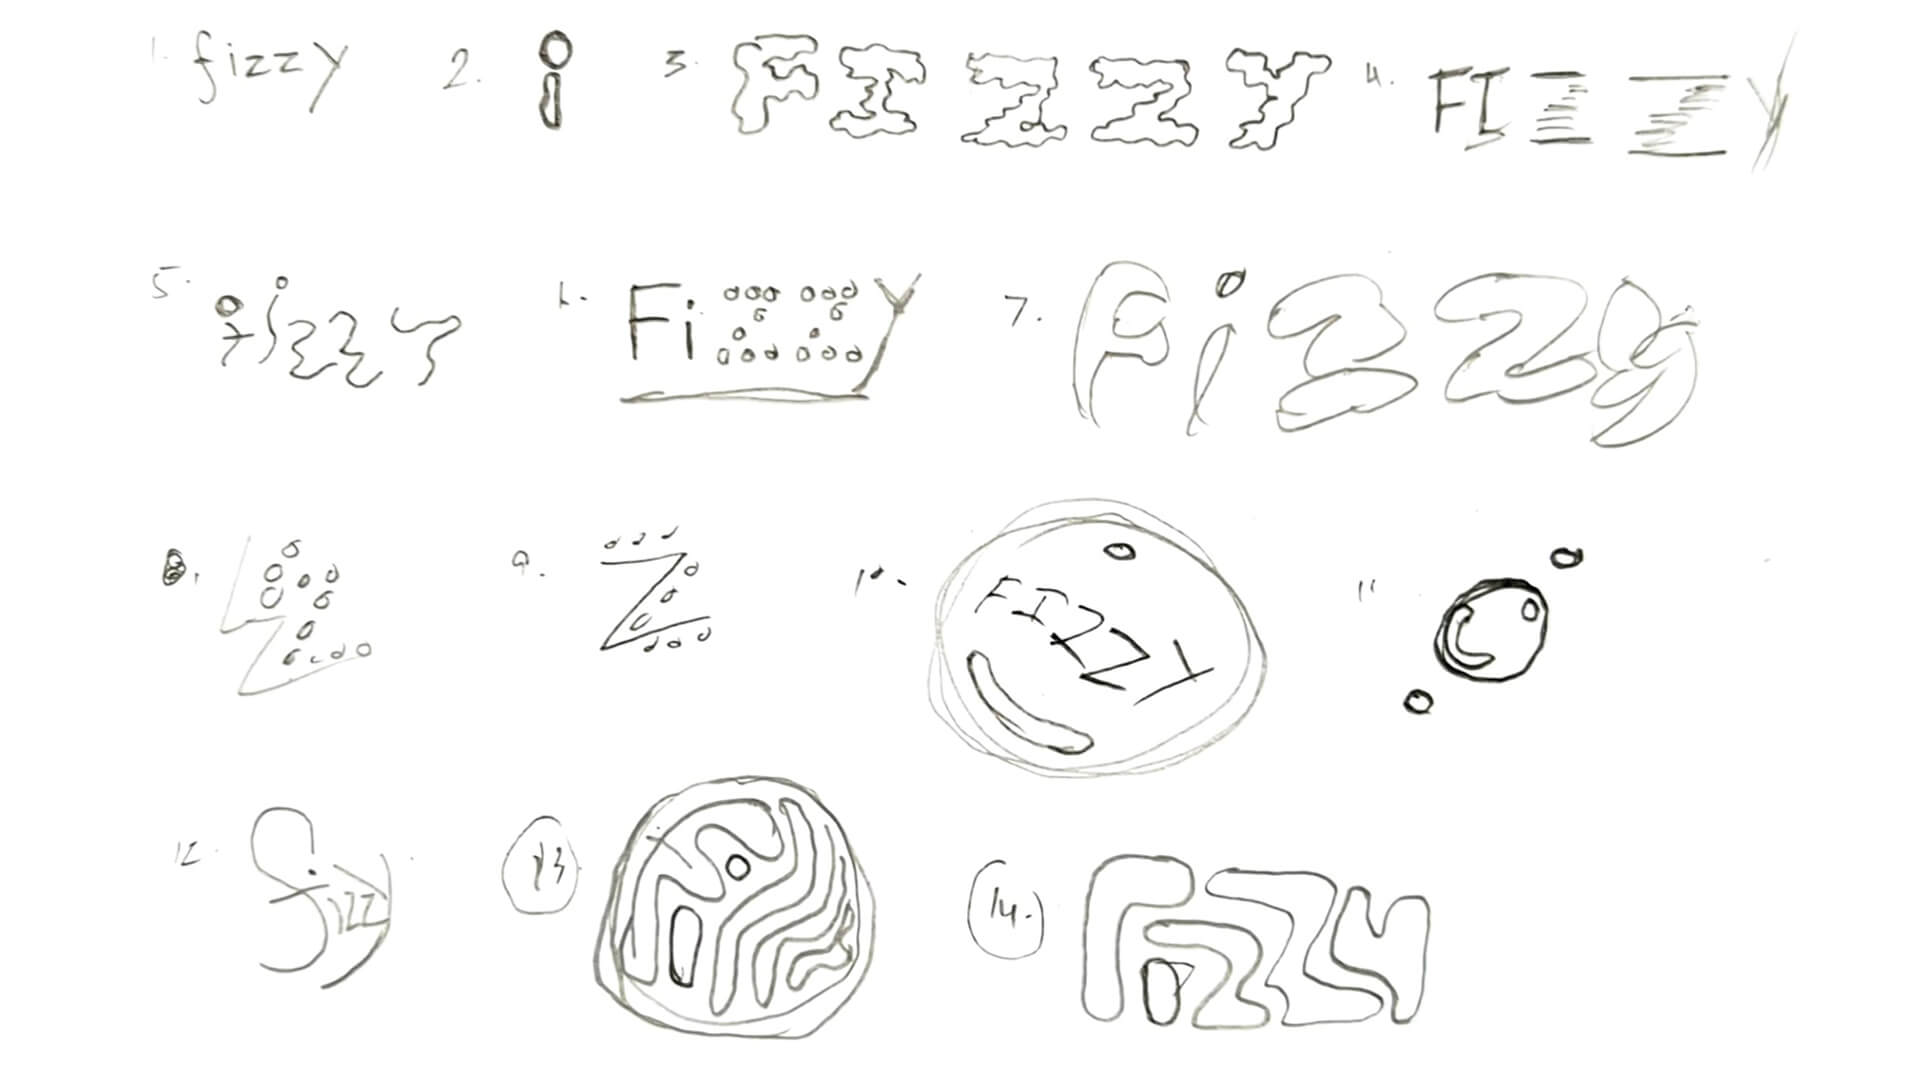 1. fizzy 2. i 3. FIZZY 4. FIZZY
5. fizzy 6. FiZZY 7. Fizzy
8. Z 9. Z 10. FIZZY 11
12. fizzy 13 14. FiZZY